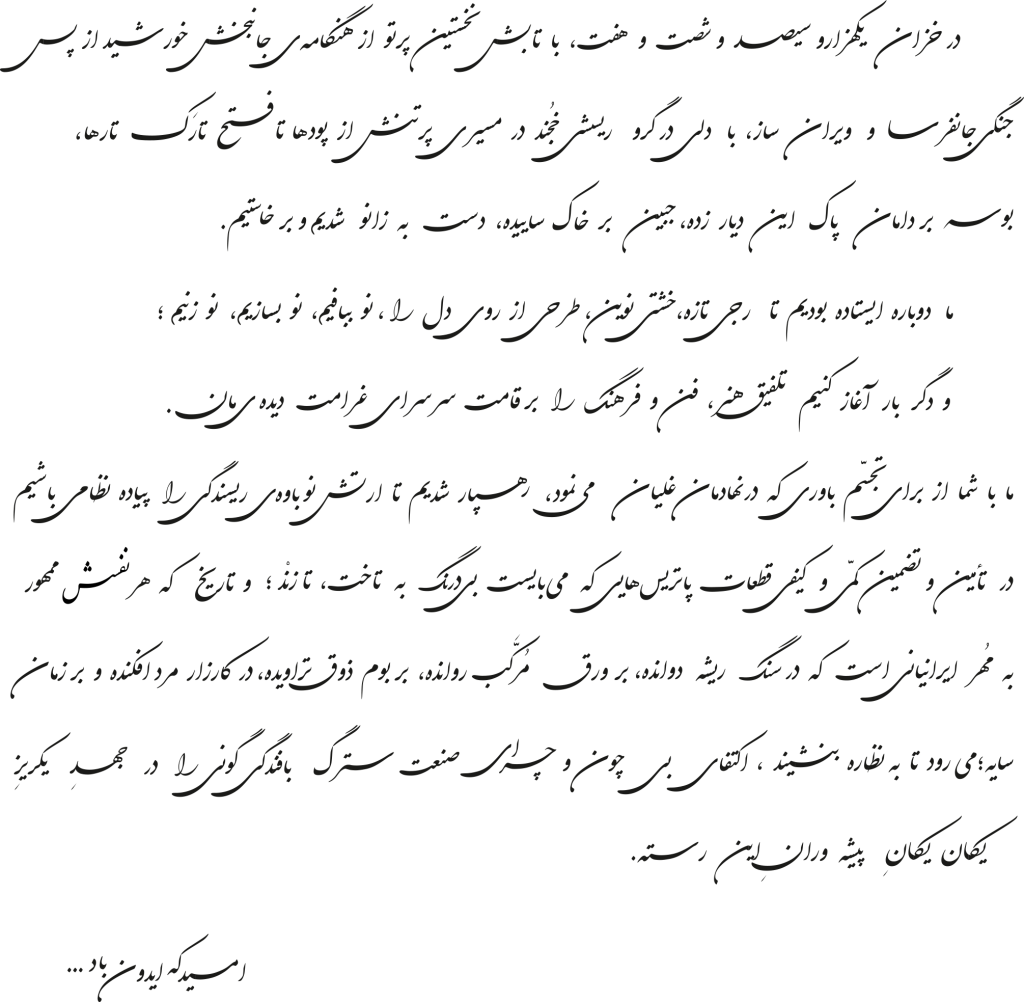 در خزان یکهزارو سیصد و شصت و هفت، با تابش نخستین پرتو از هنگامه‌ی جانبخش خورشید از پس
جنگی جانفرسا و ویران ساز، با دلی در گرو ریسشی خُجَند در مسیری پرتنش از پودها تا فتح تارَک تارها،
بوسه بر دامان پاک این دیار زده، جبین بر خاک ساییده، دست به زانو شدیم و بر خاستیم.
ما دوباره ایستاده بودیم تا رجی تازه، خشتی نوین، طرحی از روی دل را، نو ببافیم، نو بسازیم، نو زنیم؛
و دگر بار آغاز کنیم تلفیق هنر، فن و فرهنگ را بر قامت سرسرای غرامت دیده ی مان.
ما با شما از برای تجسّم باوری که در نهادمان غلیان می نمود، رهسپار شدیم تا ارتش نوباوه‌ی ریسندگی را پیاده نظامی باشیم
در تأمین و تضمین کمّی و کیفی قطعات پاتریس‌هایی که می‌بایست بی‌درنگ به تاخت، تا زنْد؛ و تاریخ که هر نفسش ممهور
به مُهر ایرانیانی است که در سنگ ریشه دوانده، بر ورق مُرکّب روانده، بر بوم ذوق تراویده، در کارزار مرد افکنده و بر زمان
سایه؛ می رود تا به نظاره بنشیند، اکتفای بی چون و چرای صنعت سترگ بافندگی گونی را در جهدِ یکریزِ
یکان یکانِ پیشه ورانِ این رسته.
امید که ایدون باد ...